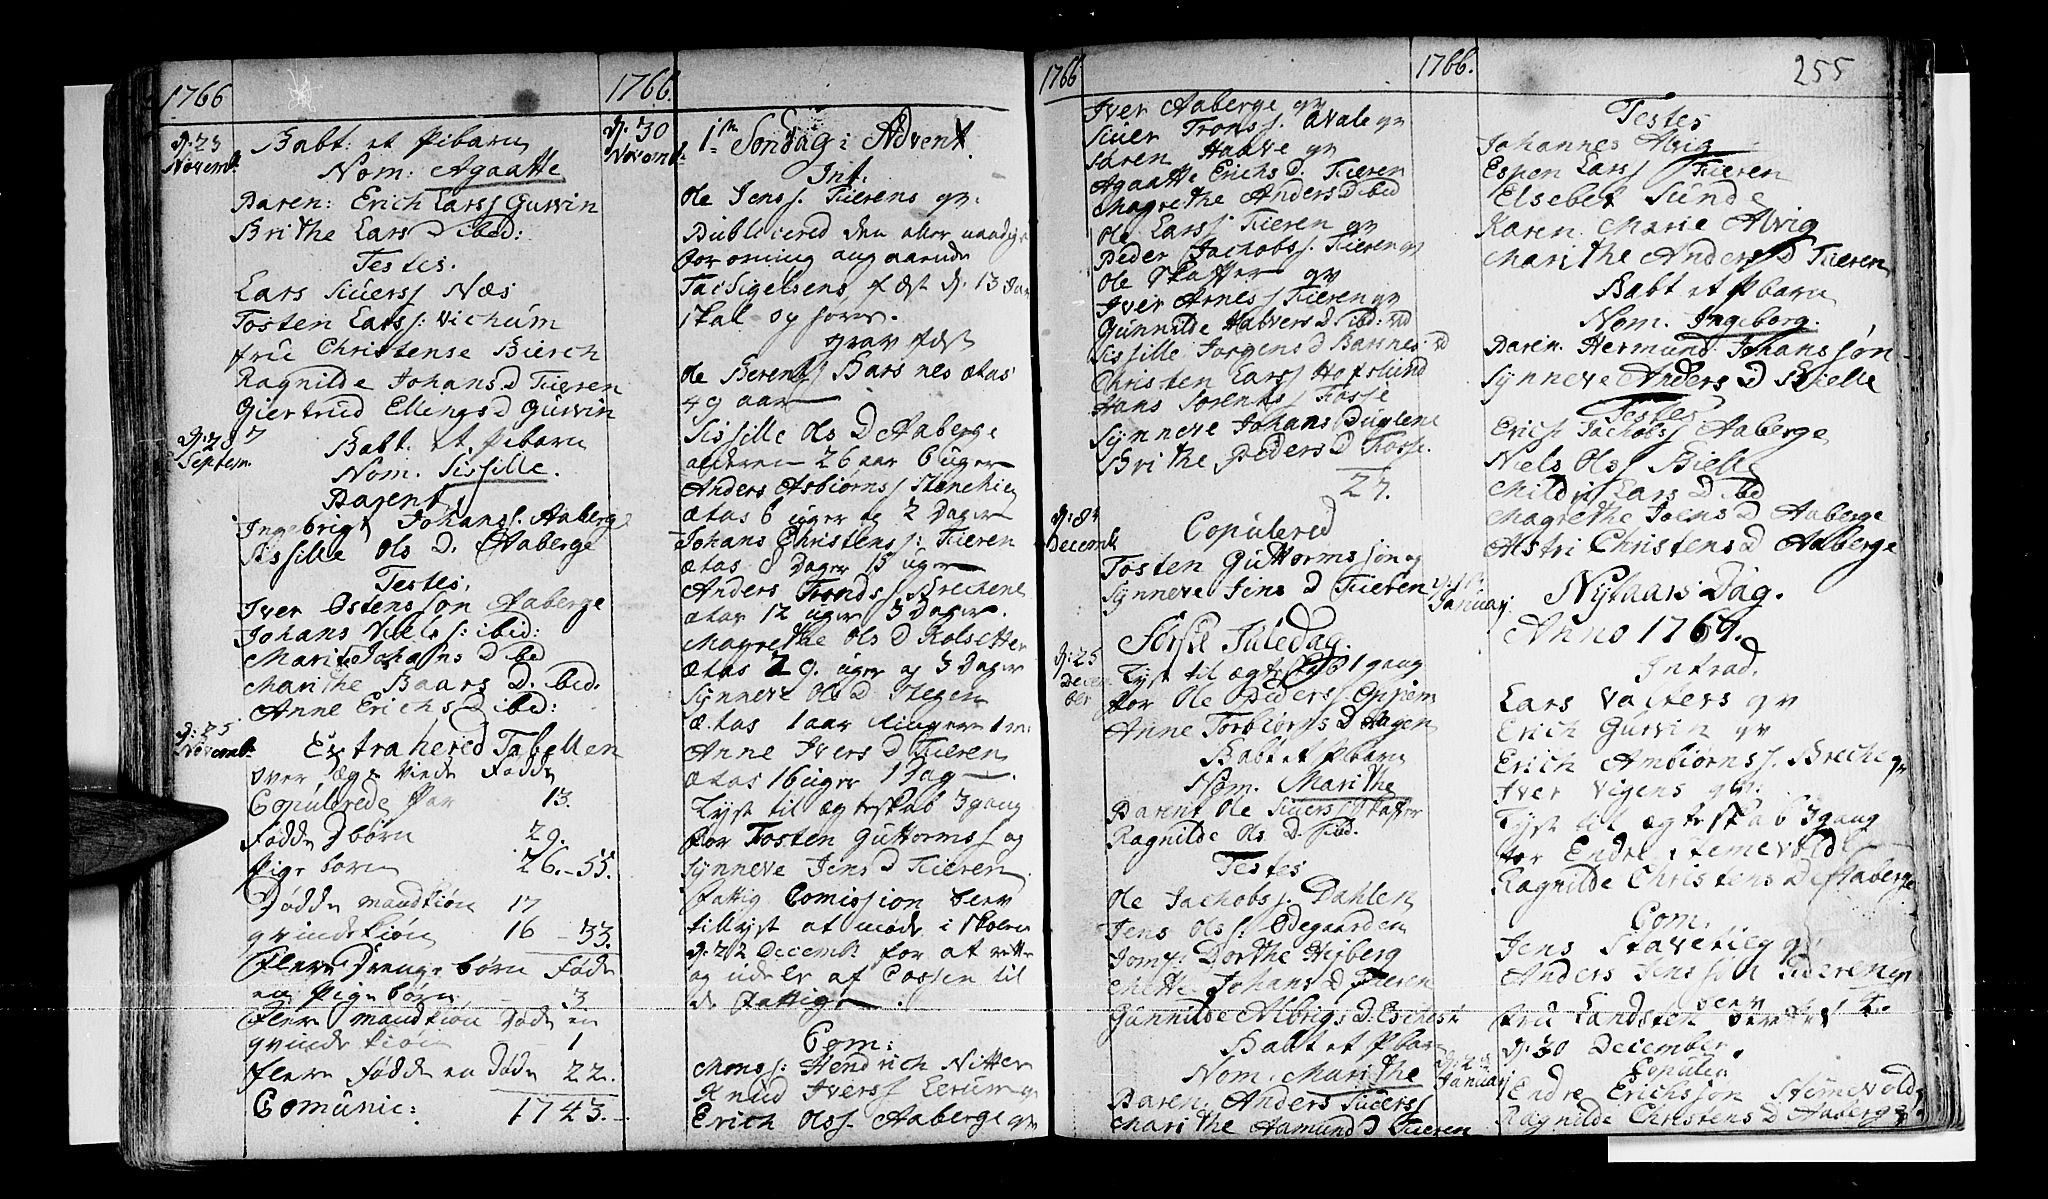 1766
D: 23 Novemb:
Babt: et Pibarn
Nom: Agaatte
Paren: Erich Larss Gurvin
Brithe Lars D ibid:
Testes.
Lars Siuerss Næs
Tosten Larss: Vichum
frue Christense Biersch
Ragnilde Johans D Tueren
Giertrud Ellings D Gurvin
Septem.
Babt. et Pibarn
Nom. Sissille.
Parent,
Ingebrigt Johanss. Aaberge
Sissille Ols D. Aaberge
Testes.
Iver Ostenssøn Aaberge
Johans Nielss: ibid:
Marithe Johans D ibid
Marithe Baars D. ibid.
Anne Erichs D ibid:
D: 25 Novemb:
Extrahered Tabellen
over Ægte Viede Fødde
Copulerede Par 13.
Fødde D børn 29.
Pige børn 26.-55.
Dødde mandkiøn 17
qvindekiøn 16 -33.
Flere Drenge børn Føde
en Pige børn - 3
Flere mandkiøn Døde en
qvindekiøn - 1
flere Fødde en Døde 22.
Comunic: 1743.
1766.
D. 30 Novemb.
1te Søndag i Advent.
Int.
Ole Jenss. Tuerens qv:
Publicered den aller naadigste
forordning angaaende
Tachsigelsens fæst D. 13 Jan
skal og
grav fæst
Ole Berentss Barsnes ætas
49 aar
Sissille Ols D Aaberge
alderen 26 aar 6 uger
Anders Asbiornss Stenehie
ætas 6 uger og 2 Dager
Johans Christenss: Tueren
ætas 8 Dager 15 uger
Anders Trondss. Brechene
ætas 12 uger 3 Dager.
Magrethe Ols D Kolsetter
ætas 29. uger og 3 Dager
Synneve Ols D Stegen
ætas 1 aar
Anne Ivers D Tueren
ætas 16 uger 1 Dag
Lyst til ægteskab 3 gang
for Tosten Guttormss og
Synneve Jens D Tueren.
fattig Comission blev
tillyst at møde i Skolen
D. 22 Decemb for at rette
og udele af Cassen til
de fattige
Com:
Monss: Hendrich Nitter
Knud Iverss Lerum qv
Erich Olss. Aaberge qv
1766
Iver Aaberge qv
Siuer Tronss. Qvale qv
Søren Haave qv
Agaatte Erichs D. Tueren
Magrethe Anders D ibid
Ole Larss Tueren qv
Peder Jachobss. Tueren qv
Ole Skaffer qv
Iver Arness Tueren qv
Gunnilde Halvers D ibid:
Sissille Jorgens D Barsnes
Christen Larss Hofslund
Hans Sorenss Fosse
Synneve Johans D
Brithe Peders D Fosse.
27.
Decemb
Copulered
Tosten Guttormssøn og
Synneve Jens D Tueren
D: 25 Decem ber
Første Juledag.
Lyst til ægteskab 1 gang
for Ole Pederss
Anne Torbiorns D Hagen
Babt et Pbarn
Nom. Marithe
Parent Ole Siuerss Skaffer
Ragnilde Ols D. ibid.
Testes
Ole Jachobss. Dahlen
Jens Olss. Ødegaarden
Jomf. Dorthe Hejberg
Mette Johans D Tueren
Gunnilde Albrigs D.
Babt et Pbarn
Nom. Marithe
Paren. Anders Siuerss
Marithe Aamund D Tueren
1766.
255
Testes
Johannes Alvig
Espen Larss Tueren
Elsebet Sunde
Karen Marie Alvig
Marithe Anders D Tueren
Babt et Pbarn
Nom. Ingeborg.
Paren. Hermund Johanssøn
Synneve Anders D Bielle
Testes
Erich Jachobss Aaberge
Niels Olss Bielle
Mildri Lars D ibid
Magrethe Joens D Aaberge
Alstri Christens D Aaberge
Januarj.
Nytaars Dag.
Anno 1767.
Intrad.
Lars Valters qv
Erich Gurvin qv
Erich Ambiørnss. Breche qv
Iver Vigens qv:
Lyst til Ægteskab 3 gang
for Endre Stemevold
Ragnilde Christens D Aaberge
Com.
Jens Stavetieg qv
Anders Jenssøn Tueren qv
fru
D. 30 December.
Januarj
Copuler.
Endre Erichsøn Stemevold
Ragnilde Christens D Aaberge